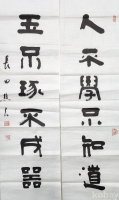 人不學不知道
玉不琢不成器